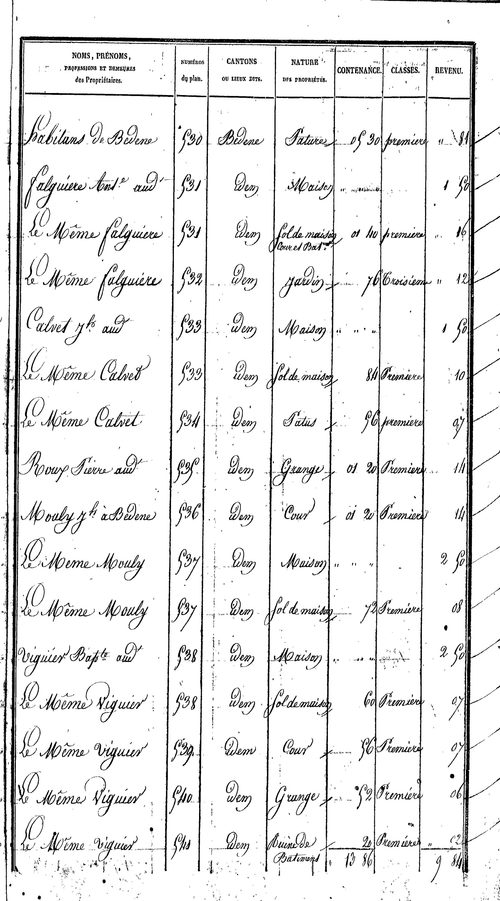 NOMS, PRÉNOMS, PROFESSIONS ET DEMEURES des Propriétaires. NUMÉROS du plan. CANTONS OU LIEUX DITS. NATURE DES PROPRIÉTÉS. CONTENANCE. CLASSES. REVENU.
habitans de Bedene 530 Bedene Pature 05 30 premiere " 81
falguiere Ant.e aud.t 531 idem Maison " " " 1 50
Le Même falguiere 531 idem Sol de maison Cour et Bat.t 01 40 premiere " 16
Le Même falguiere 532 idem Jardin 76 troisieme " 12
Calvet J.h aud 533 idem Maison " " " 1 50
Le Même Calvet 533 idem Sol de maison 84 Premiere 10
Le Même Calvet 534 idem Patus 56 premiere 07
Roux Pierre aud.t 535 idem Grange 01 20 Premiere 14
Mouly J.h à Bedene 536 idem Cour 01 20 Premiere 14
Le Même Mouly 537 idem Maison " " " 2 50
Le Même Mouly 537 idem Sol de maison 72 Premiere 08
Viguier Bap.te aud 538 idem Maison " " " 2 50
Le Même Viguier 538 idem Sol de maison 60 Premiere 07
Le Même Viguier 539 idem Cour 56 Premiere 07
Le Même Viguier 540 idem Grange 52 Premiere 06
Le Même Viguier 541 idem Ruine de Batiment 20 Premiere " 02
13 86 9 84